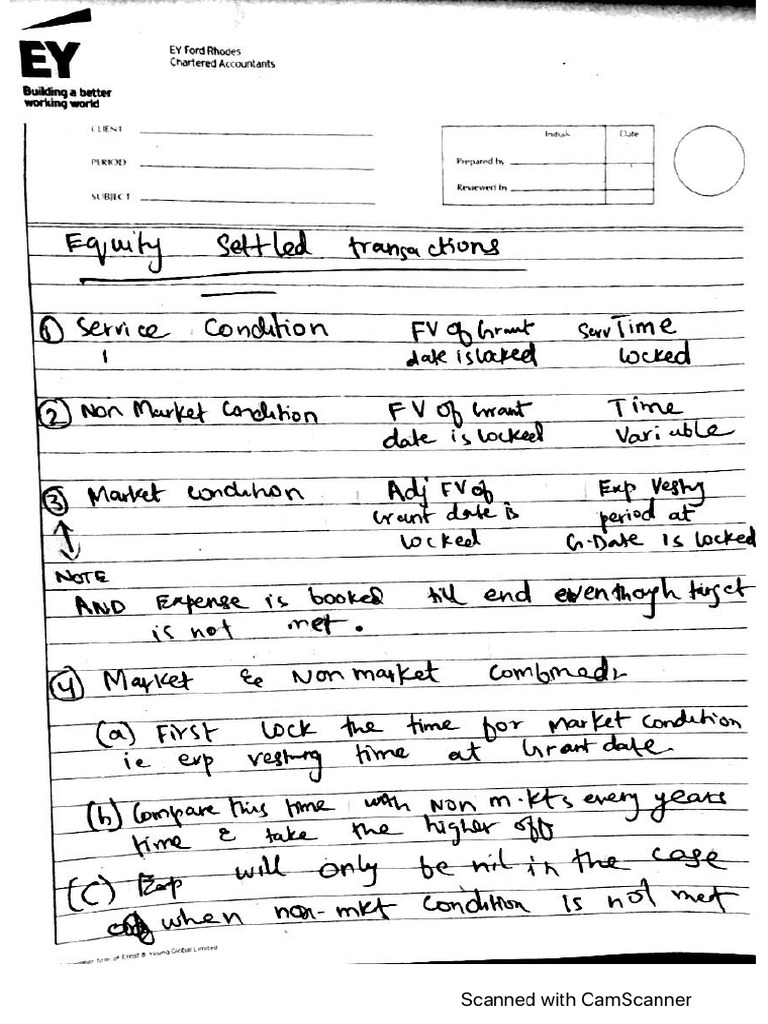 EY
Building a better
working world
EY Ford Rhodes
Chartered Accountants
CLIENT
PERIOD
SUBJECT
Initials Date
Prepared by
Reviewed by
Equity Settled transactions
① Service Condition FV of Grant date is locked Serv Time locked
② Non Market Condition FV of Grant date is locked Time Variable
③ Market condition Adj FV of Grant date is locked Exp Vesting period at G-Date is locked
NOTE
AND Expense is booked till end eventhough target
is not met.
④ Market & Non market combined
(a) First lock the time for Market condition
ie exp vesting time at Grant date.
(b) Compare this time with Non m.kts every years
time & take the higher off
(C) Exp will only be nil in the case
when non-mkt condition is not met
member firm of Ernst & Young Global Limited
Scanned with CamScanner